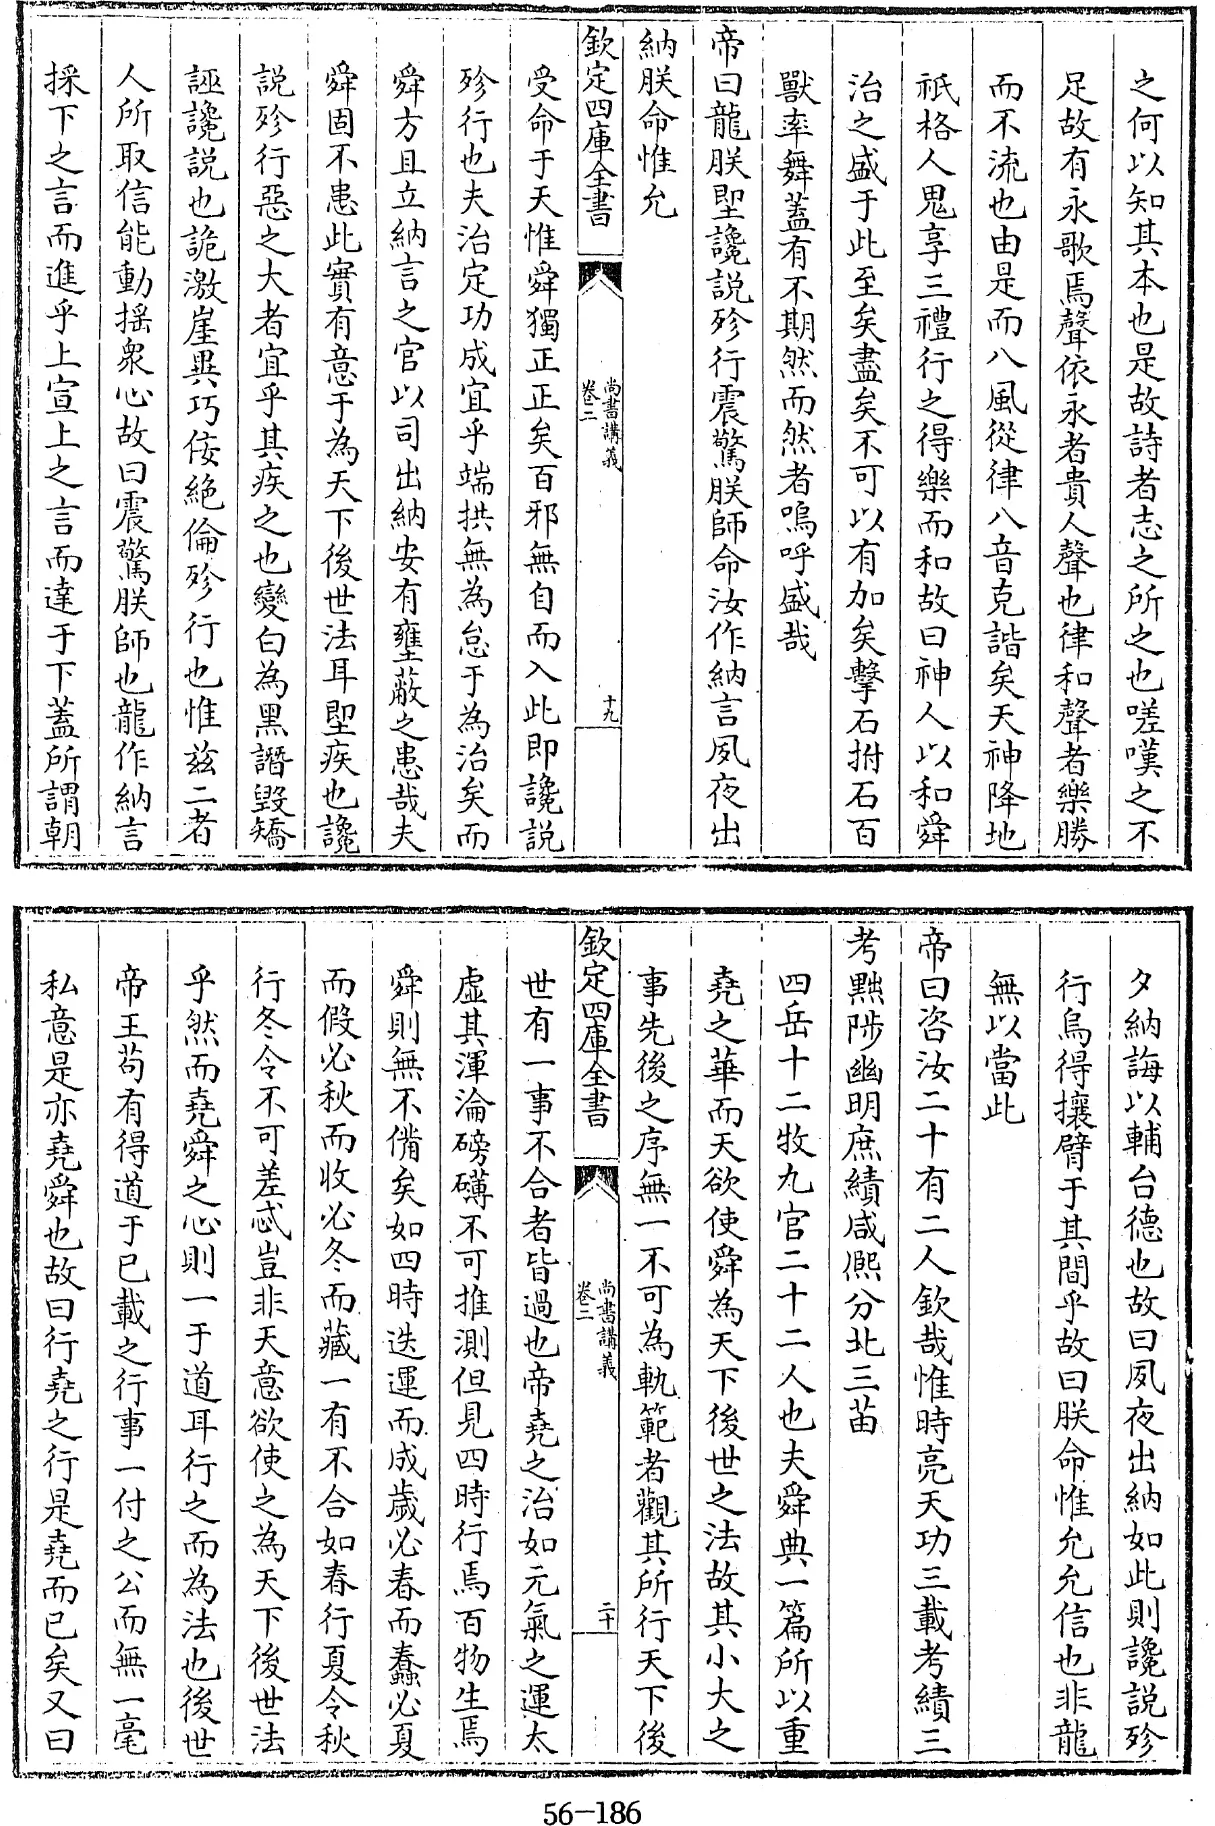 之何以知其本也是故詩者志之所之也嗟嘆之不
足故有永歌焉聲依永者貴人聲也律和聲者樂勝
而不流也由是而八風從律八音克諧矣天神降地
祇格人鬼享三禮行之得樂而和故曰神人以和舜
治之盛于此至矣盡矣不可以有加矣擊石拊石百
獸率舞蓋有不期然而然者嗚呼盛哉
帝曰龍朕堲讒説殄行震驚朕師命汝作納言夙夜出
納朕命惟允
欽定四庫全書
尚書講義
卷二
十九
受命于天惟舜獨正正矣百邪無自而入此即讒説
殄行也夫治定功成宜乎端拱無為怠于為治矣而
舜方且立納言之官以司出納安有壅蔽之患哉夫
舜固不患此實有意于為天下後世法耳堲疾也讒
説殄行惡之大者宜乎其疾之也變白為黑譖毀矯
誣讒説也詭激崖異巧佞絶倫殄行也惟兹二者
人所取信能動揺衆心故曰震驚朕師也龍作納言
採下之言而進乎上宣上之言而達于下蓋所謂朝
夕納誨以輔台德也故曰夙夜出納如此則讒説殄
行烏得攘臂于其間乎故曰朕命惟允允信也非龍
無以當此
帝曰咨汝二十有二人欽哉惟時亮天功三載考績三
考黜陟幽明庶績咸熈分北三苗
四岳十二牧九官二十二人也夫舜典一篇所以重
堯之華而天欲使舜為天下後世之法故其小大之
事先後之序無一不可為軌範者觀其所行天下後
欽定四庫全書
尚書講義
卷二
二十
世有一事不合者皆過也帝堯之治如元氣之運太
虛其渾淪磅礴不可推測但見四時行焉百物生焉
舜則無不備矣如四時迭運而成歲必春而蠢必夏
而假必秋而收必冬而藏一有不合如春行夏令秋
行冬令不可差忒豈非天意欲使之為天下後世法
乎然而堯舜之心則一于道耳行之而為法也後世
帝王苟有得道于已載之行事一付之公而無一毫
私意是亦堯舜也故曰行堯之行是堯而已矣又曰
56-186